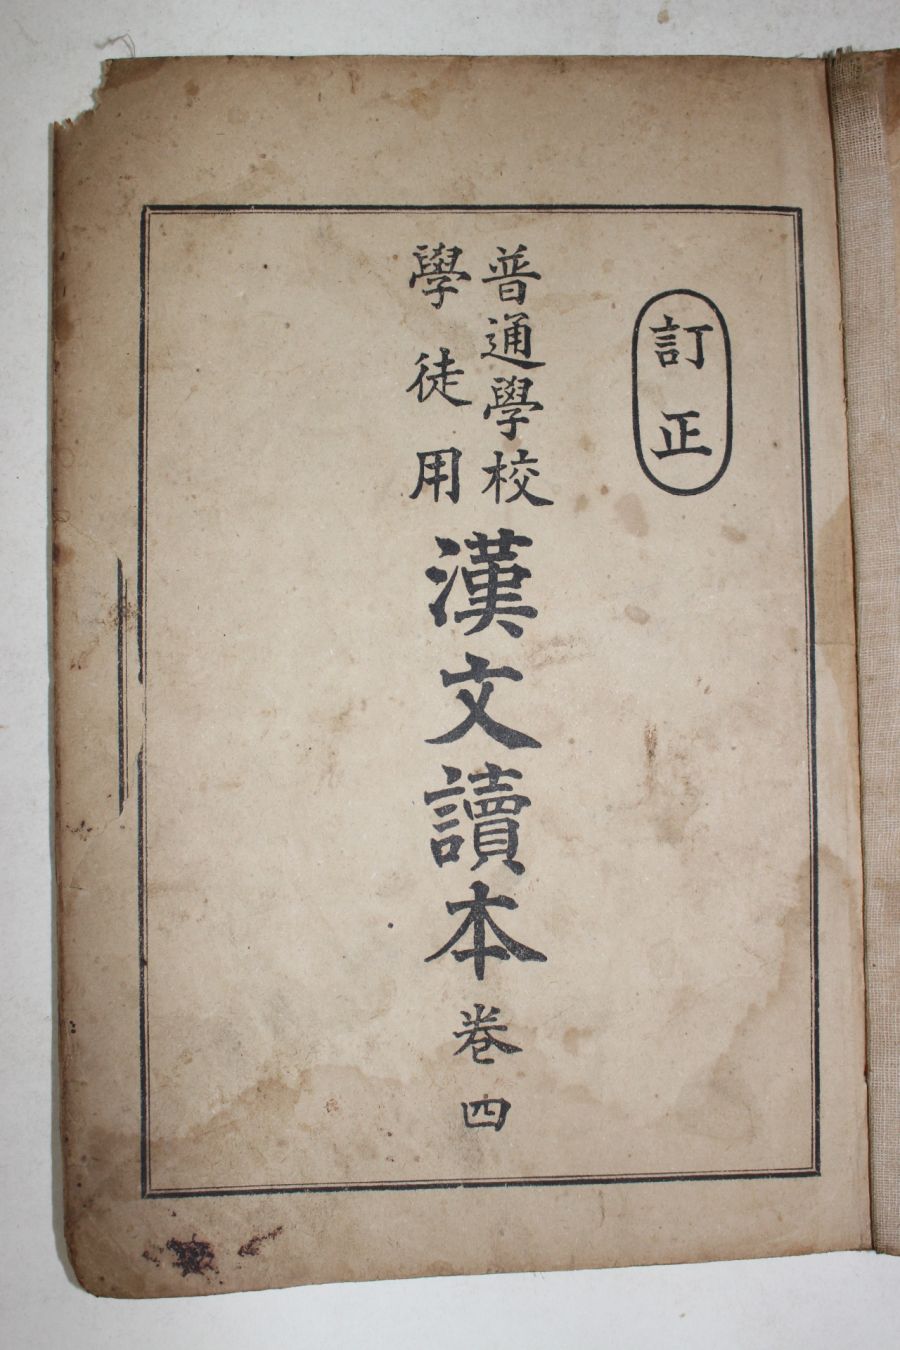 訂正
普通學校
學徒用
漢文讀本
卷四